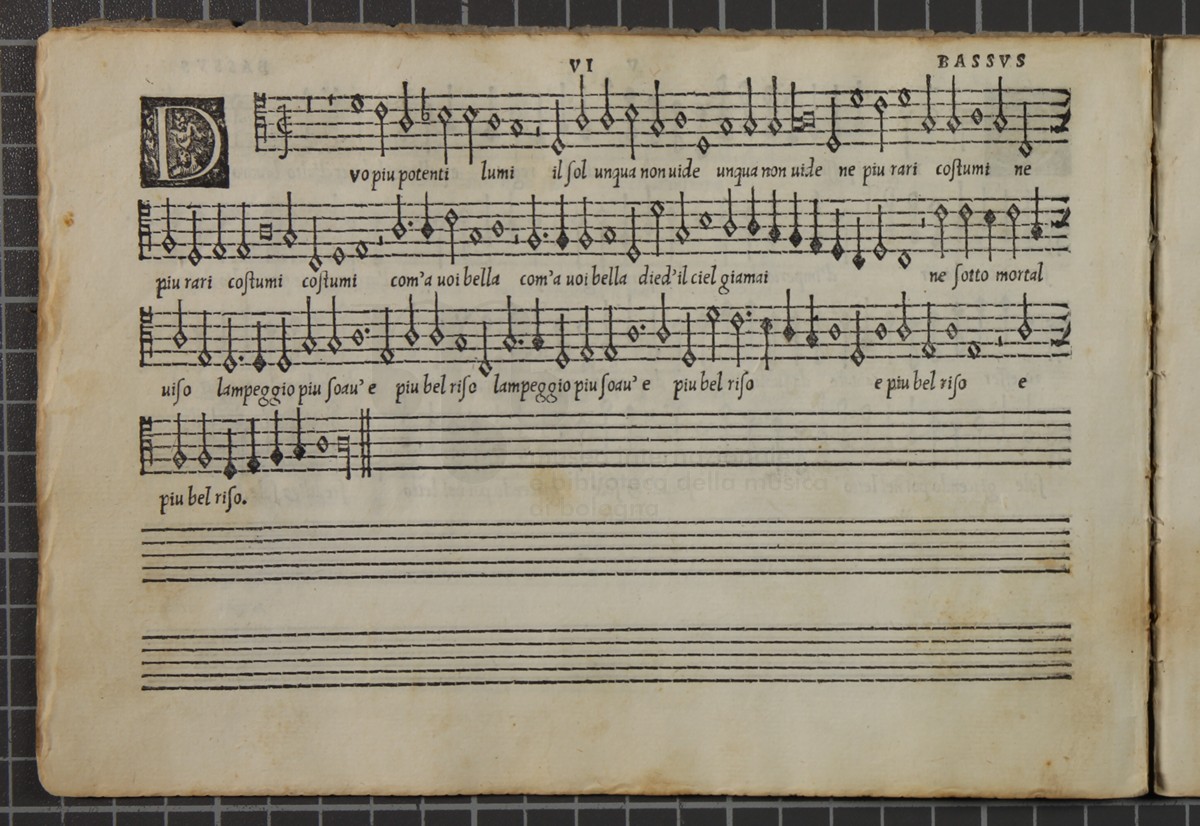 VI
BASSVS
D
vo piu potenti lumi il ſol unqua non uide unqua non uide ne piu rari coſtumi ne
piu rari coſtumi coſtumi com'a uoi bella com'a uoi bella died'il ciel giamai ne ſotto mortal
uiſo lampeggio piu ſoau' e piu bel riſo lampeggio piu ſoau' e piu bel riſo e piu bel riſo e
piu bel riſo.
museo internazionale
e biblioteca della musica
di bologna